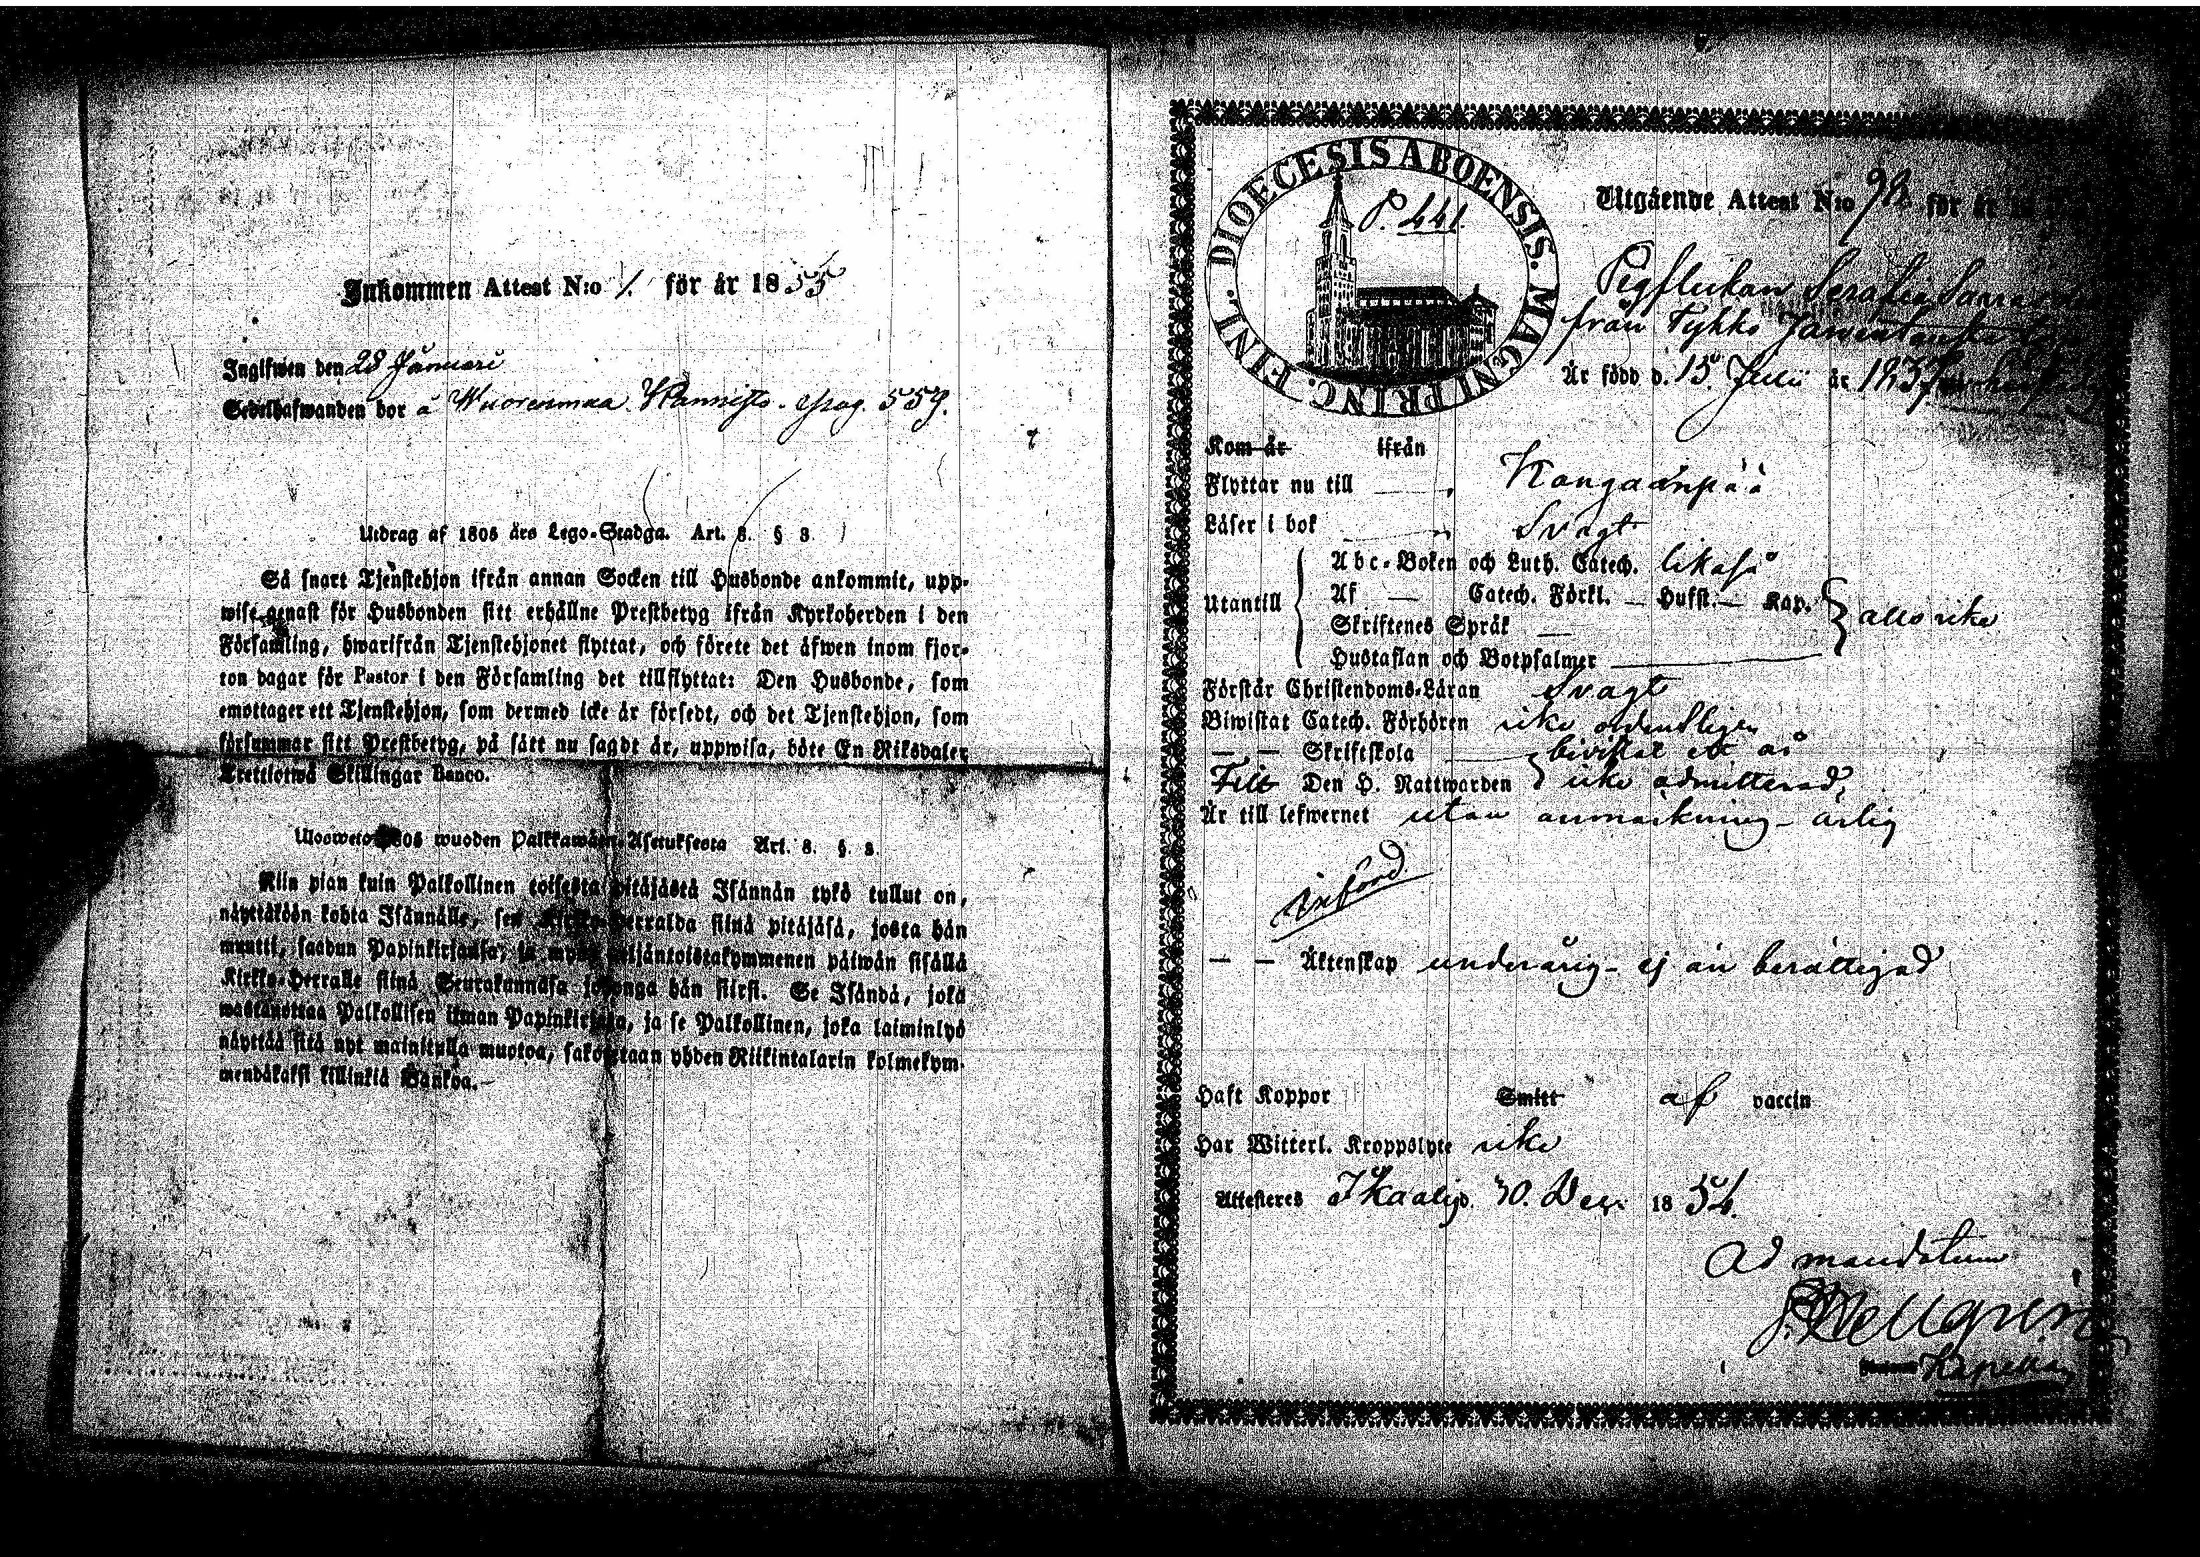 Inkommen Attest N:o 1. för år 1855
Ingifwen den 28 Januari
Sedelhafwanden bor å Wuorenmaa Kannisto. pag. 559.
Utdrag af 1805 års Lego-Stadga. Art. 8. § 8.
Så snart Tjenstehjon ifrån annan Socken till Husbonde ankommit, upp-
wise genast för Husbonden sitt erhållne Prestbetyg ifrån Kyrkoherden i den
Församling, hwarifrån Tjenstehjonet flyttat, och förete det äfwen inom fjor-
ton dagar för Pastor i den Församling det tillflyttat: Den Husbonde, som
emottager ett Tjenstehjon, som dermed icke är försedt, och det Tjenstehjon, som
försummar sitt Prestbetyg, på sätt nu sagdt är, uppwisa, böte En Riksdaler
Trettiotwå Skillingar Banco.
Ulosweto 1805 wuoden Palkkawäen-Asetuksesta Art. 8. §. 8.
Niin pian kuin Palkollinen toisesta pitäjästä Isännän tykö tullut on,
näyttäköön kohta Isännälle, sen Kirkko-Herralda siinä pitäjäsä, josta hän
muutti, saadun Papinkirjansa, ja myös neljäntoistakymmenen päiwän sisällä
Kirkko-Herralle siinä Seurakunnasa johonga hän siirsi. Se Isändä, joka
wastanottaa Palkollisen ilman Papinkirjata, ja se Palkollinen, joka laiminlyö
näyttää sitä nyt mainitulla muotoa, sakotetaan yhden Riikintalarin kolmekym-
mendäkaksi killinkiä Bankoa.
DIOECESIS ABOENSIS. MAGNI PRINC. FINL.
P. 441.
Utgående Attest N:o 92 för år
Pigflickan Serafia
från Tykkö
Är född d. 15. Julii år 1837
Kom år ifrån
Flyttar nu till Kangaanpää
Läser i bok Svagt
Utantill
Abc-Boken och Luth. Catech. likaså
Af — Catech. Förkl. — Hufst. — Kap.
Skriftenes Språk —
Hustaflan och Botpsalmer
alls icke
Förstår Christendoms-Läran Svagt
Biwistat Catech. Förhören icke ordentligen
— — Skriftskola bivistat ett år
Den H. Nattwarden icke admitterad,
Är till lefwernet utan anmärkning - ärlig
införd
— — Äktenskap underårig - ej än berättigad
Haft Koppor Smitt af vaccin
Har Witterl. Kroppslyte icke
Attesteres Ikaalis d. 30. Dec. 1854.
Ad mandatum
Kapellan